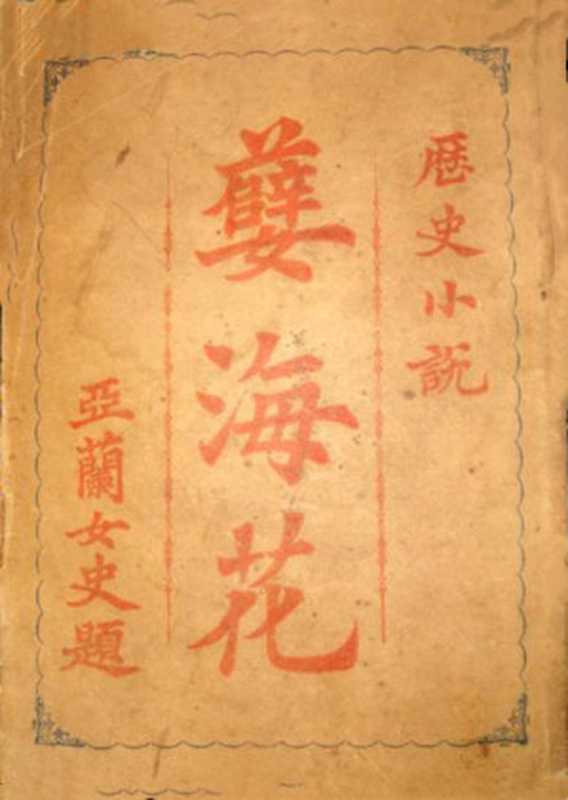 歷史小說
孼海花
亞蘭女史題